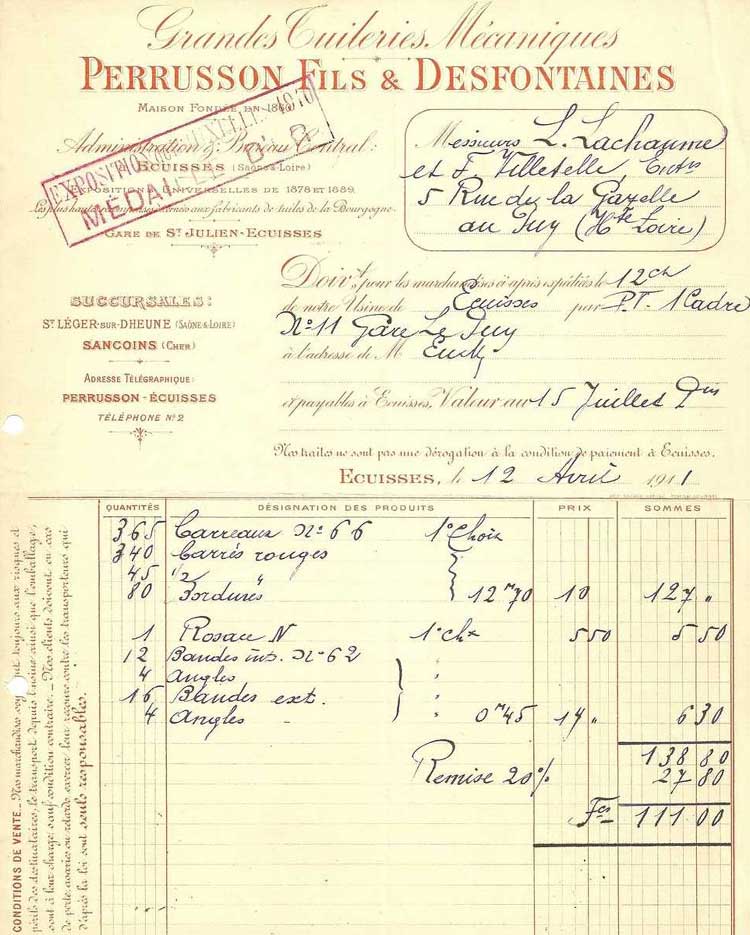 Grandes Tuileries Mécaniques
PERRUSSON FILS & DESFONTAINES
MAISON FONDÉE EN 1860
Administration & Bureau Central:
ECUISSES (SAÔNE & LOIRE)
EXPOSITIONS UNIVERSELLES DE 1878 ET 1889
Les plus hautes récompenses données aux fabricants de tuiles de la Bourgogne
GARE DE ST JULIEN-ECUISSES
EXPOSITION BRUXELLES 1910
MÉDAILLE D'OR
Messieurs L. Lachaume
et F. Villetelle, Entrs
5 Rue de la Gazelle
au Puy (Hte Loire)
SUCCURSALES:
ST LÉGER-SUR-DHEUNE (SAÔNE & LOIRE)
SANCOINS (CHER)
ADRESSE TÉLÉGRAPHIQUE:
PERRUSSON-ÉCUISSES
TÉLÉPHONE No 2
Doivt pour les marchandises ci-après expédiées le 12 ct
de notre Usine de Ecuisses par P.V. 1 Cadre
No 11 Gare Le Puy
à l'adresse de M
et payables à Ecuisses, Valeur au 15 Juillet
Nos traites ne sont pas une dérogation à la condition de paiement à Ecuisses.
ECUISSES, le 12 Avril 1911
QUANTITÉS DÉSIGNATION DES PRODUITS PRIX SOMMES
365 Carreaux No 66 1o Choix
340 Carrés rouges
45 1/2 "
80 Bordures 12m70 10 127 "
1 Rosace N 1o ch 550 5 50
12 Bandes int. No 62 "
4 Angles "
16 Bandes ext. "
4 Angles - " 0m45 14 " 6 30
138 80
Remise 20% 27 80
Fcs 111 00
CONDITIONS DE VENTE._Nos marchandises voyagent toujours aux risques et
périls des destinataires, le transport depuis l'usine ainsi que l'emballage,
sont à leur charge sauf condition contraire._Nos clients doivent en cas
de perte avaries ou retards exercer leur recours contre les transporteurs qui
d'après la loi sont seuls responsables.